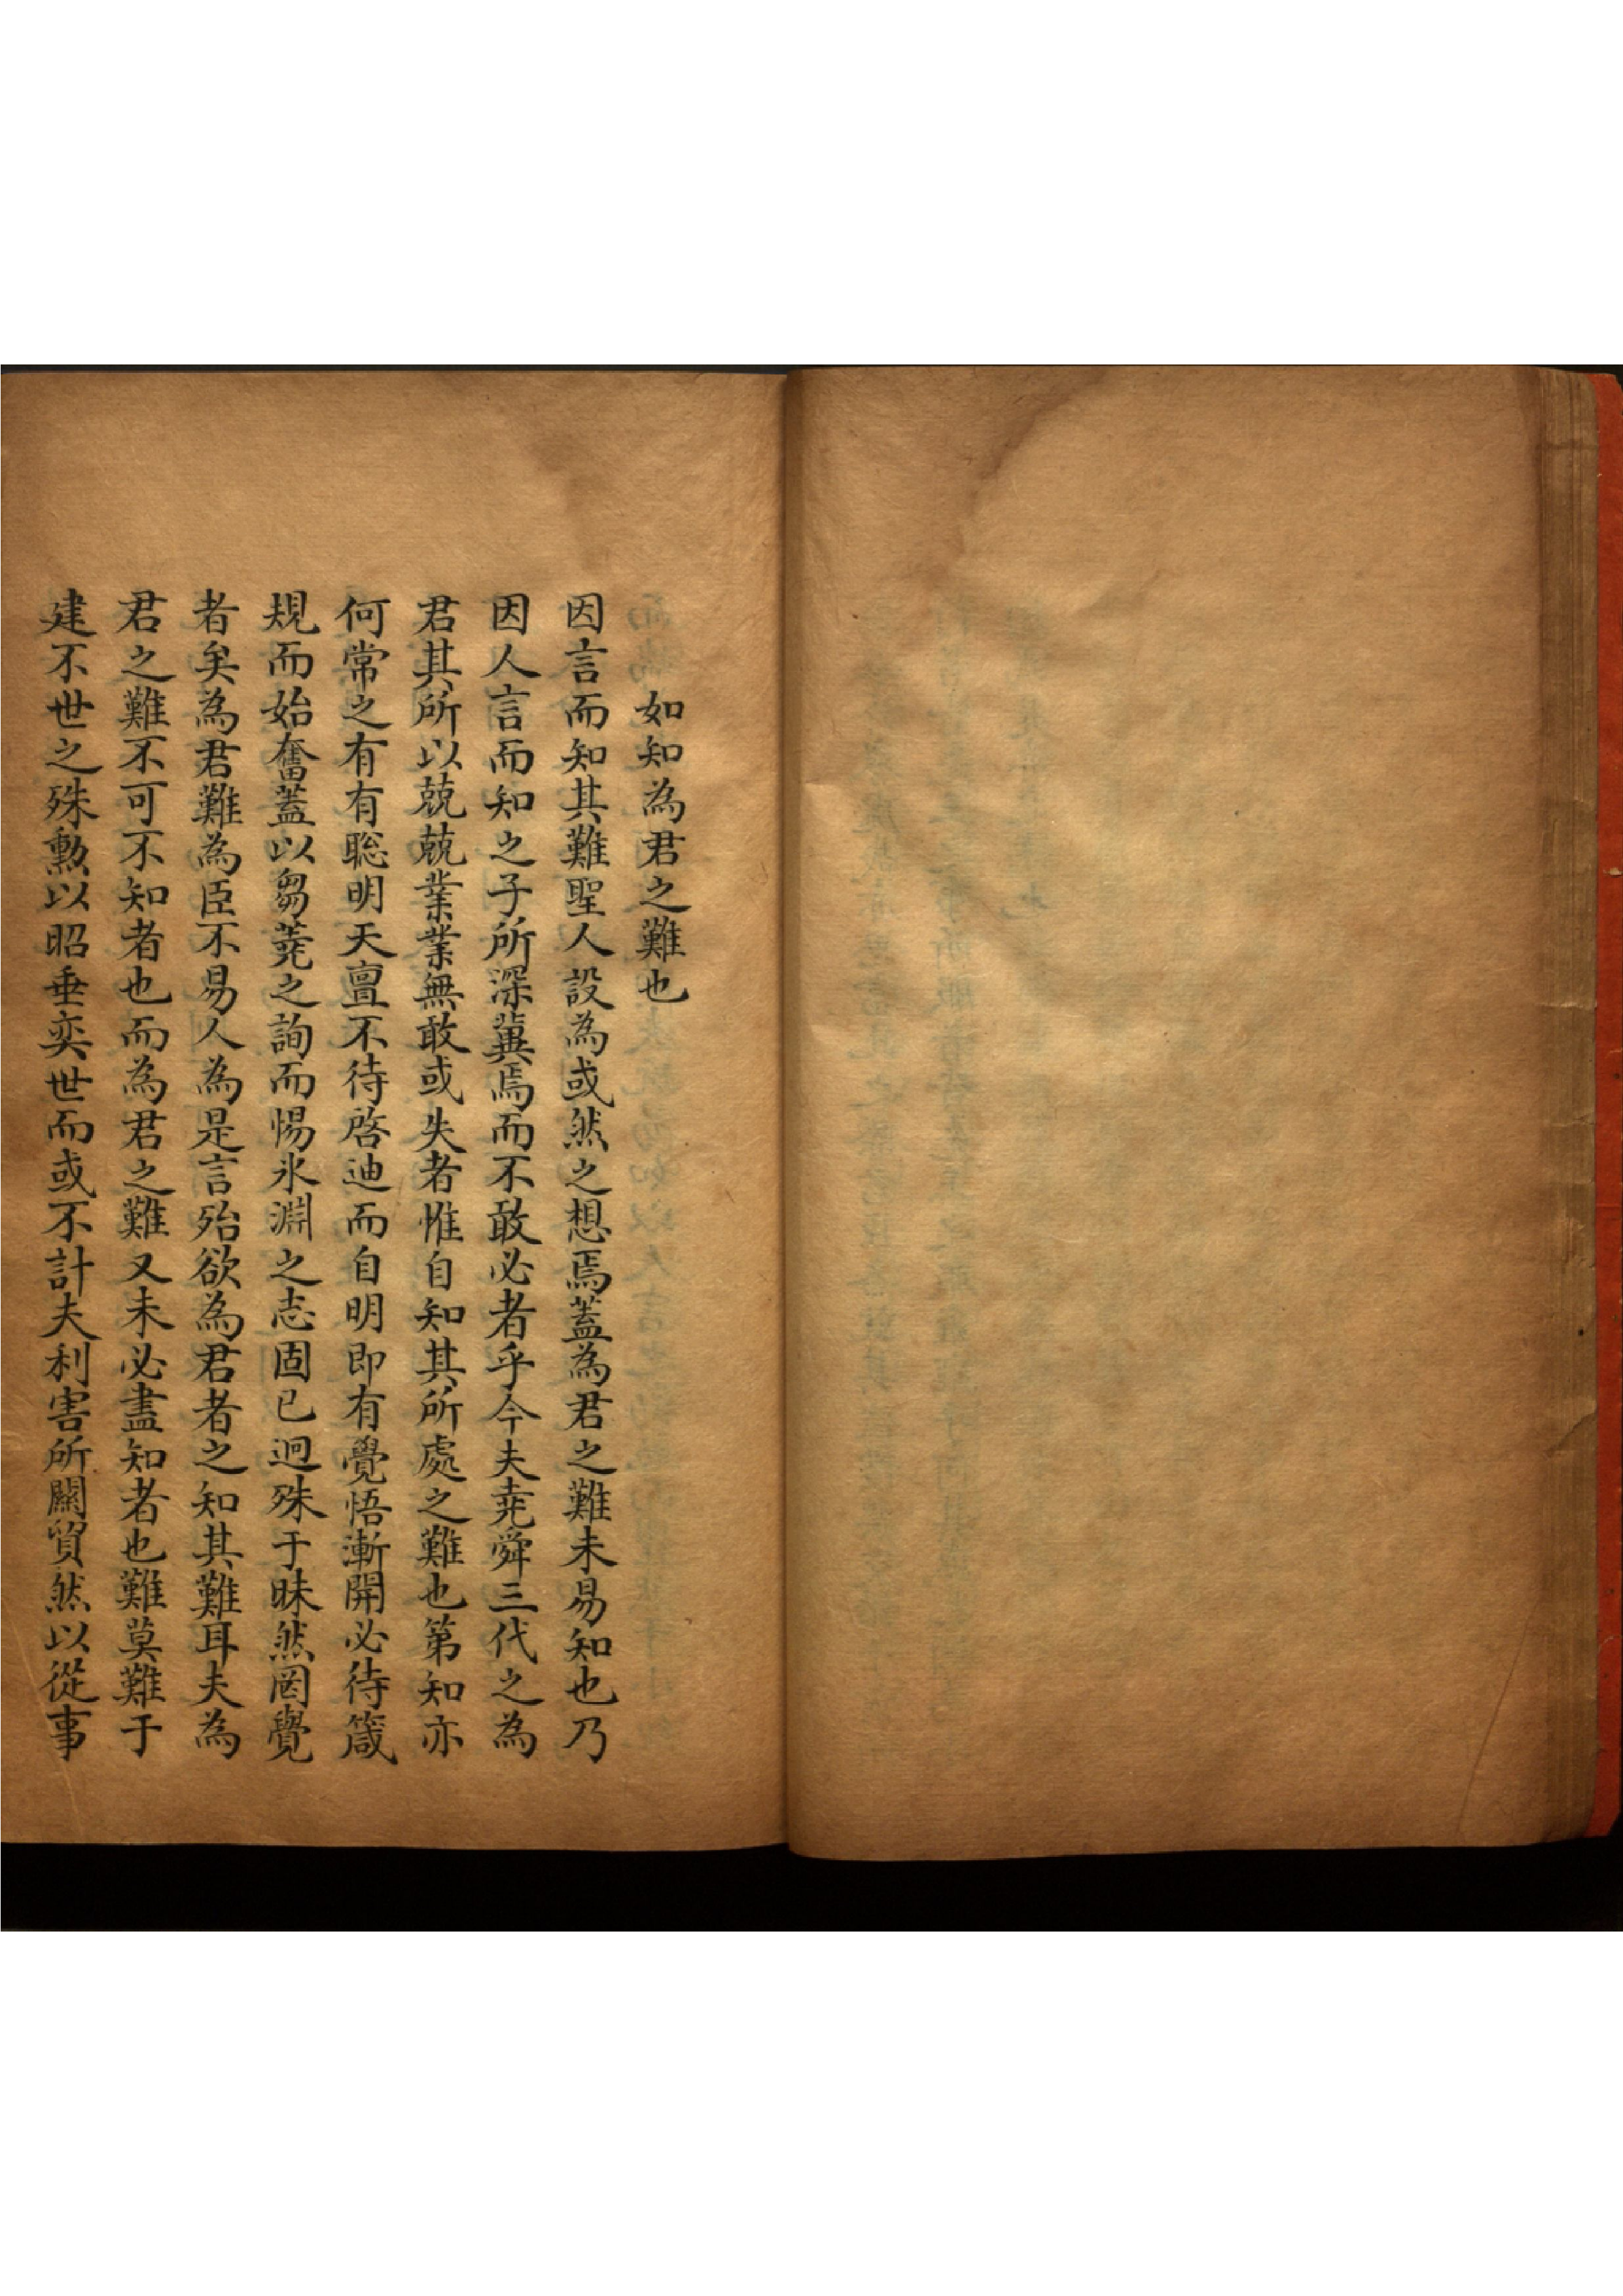 如知為君之難也
因言而知其難聖人設為或然之想焉蓋為君之難未易知也乃
因人言而知之子所深冀焉而不敢必者乎今夫堯舜三代之為
君其所以兢兢業業無敢或失者惟自知其所處之難也第知亦
何常之有有聡明天亶不待啓迪而自明即有覺悟漸開必待箴
規而始奮蓋以芻蕘之詢而惕氷淵之志固已迥殊于昧然罔覺
者矣為君難為臣不易人為是言殆欲為君者之知其難耳夫為
君之難不可不知者也而為君之難又未必盡知者也難莫難于
建不世之殊勲以昭垂奕世而或不計夫利害所關貿然以從事